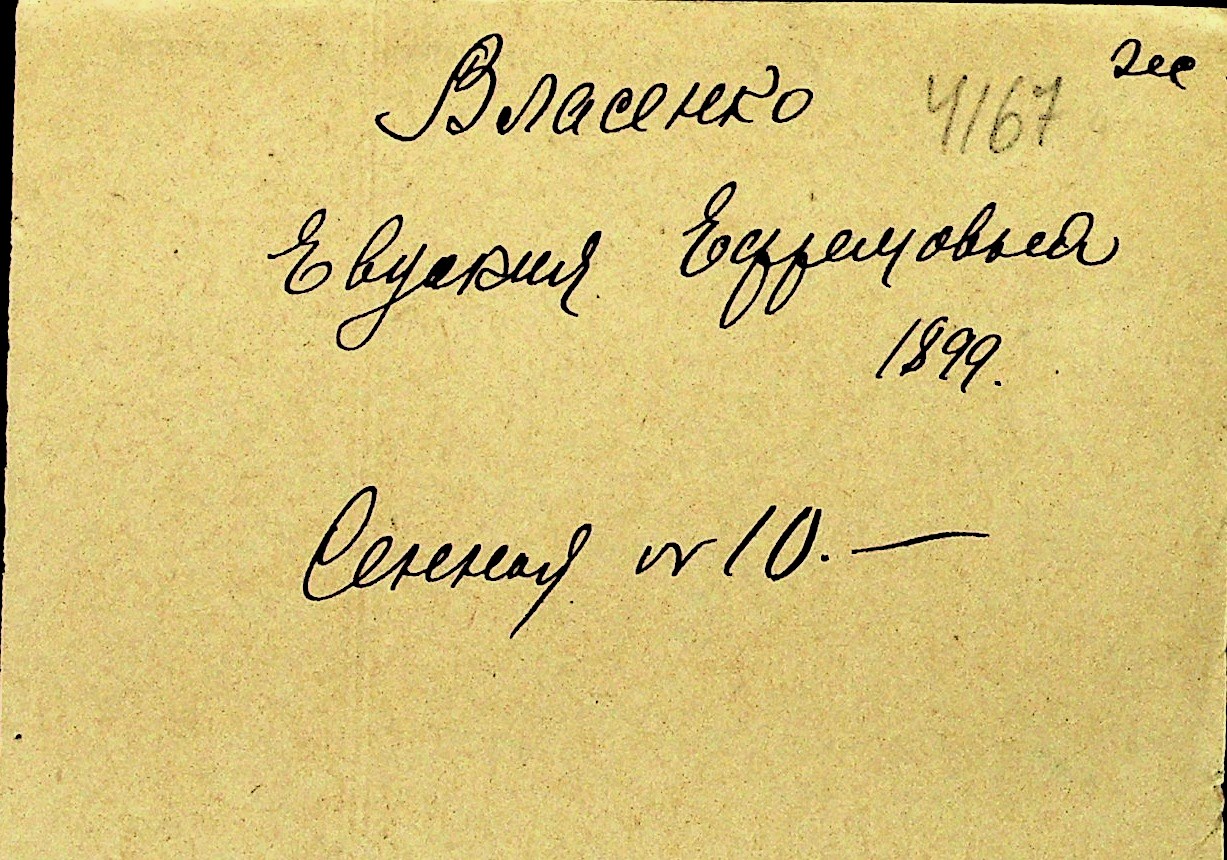 Власенко 4167 же
Евдокия Ефремовна
1899.
Сенная № 10. —